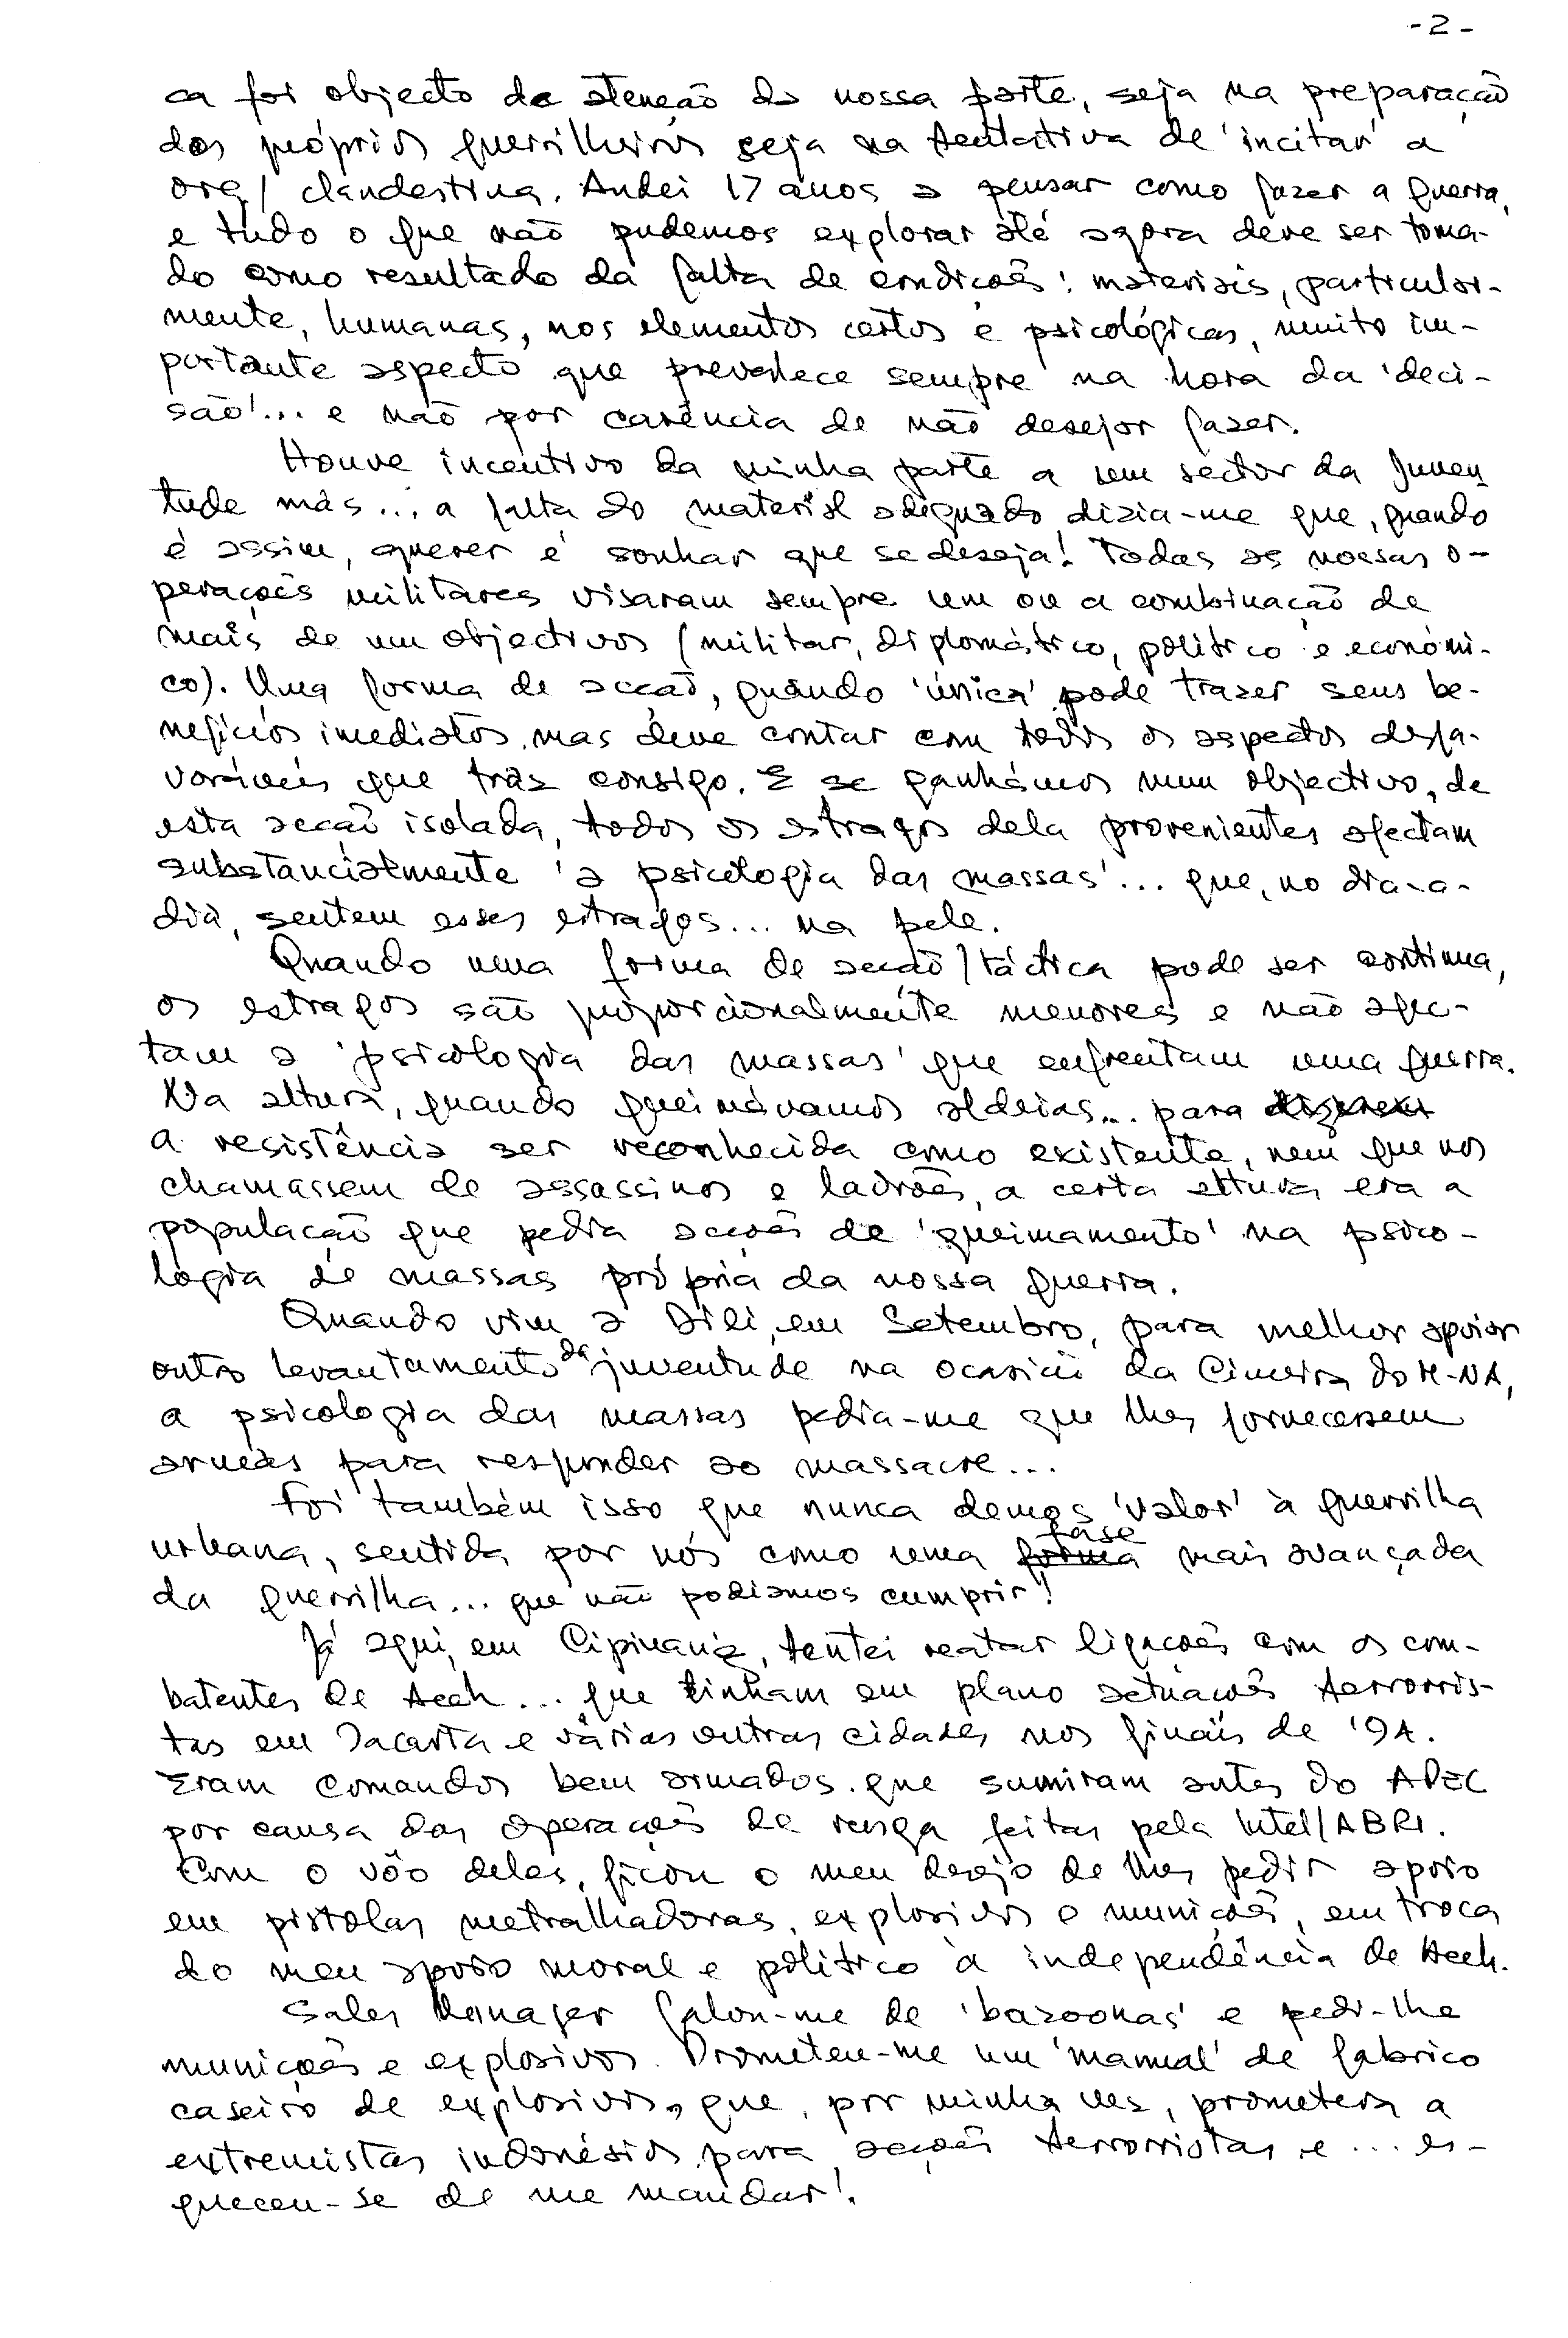 - 2 -
ca foi objecto de atenção da nossa parte, seja na preparação
dos próprios guerrilheiros seja na tentativa de 'incitar' a
org/ clandestina. Andei 17 anos a pensar como fazer a guerra,
e tudo o que não pudemos explorar até agora deve ser toma-
do como resultado da falta de condições: materiais, particular-
mente, humanas, nos elementos certos e psicológicas, muito im-
portante aspecto que prevalece sempre na hora da 'deci-
são'... e não por carência de não desejar fazer.
Houve incentivo da minha parte a um sector da juven
tude mas... a falta do material adequado dizia-me que, quando
é assim, querer é sonhar que se deseja! Todas as nossas o-
perações militares visaram sempre um ou a combinação de
mais de um objectivos (militar, diplomático, político e económi-
co). Uma forma de acção, quando 'única' pode trazer seus be-
nefícios imediatos, mas deve contar com todos os aspectos desfa-
voráveis que trás consigo. E se ganhámos num objectivo, de
esta acção isolada, todos os estragos dela provenientes afectam
substancialmente 'a psicologia das massas'... que, no dia-a-
dia, sentem esses estragos... na pele.
Quando uma forma de acção/táctica pode ser contínua,
os estragos são proporcionalmente menores e não afec-
tam a 'psicologia das massas' que enfrentam uma guerra.
Na altura, quando queimávamos aldeias... para
a resistência ser reconhecida como existente, nem que nos
chamassem de assassinos e ladrões, a certa altura era a
população que pedia acções de 'queimamento' na psico-
logia de massas própria da nossa guerra.
Quando vim a Dili, em Setembro, para melhor apoiar
outro levantamento da juventude na ocasião da Cimeira do M-NA,
a psicologia das massas pedia-me que lhes fornecessem
armas para responder ao massacre...
Foi também isso que nunca demos 'valor' à guerrilha
urbana, sentida por nós como uma forma fase mais avançada
da guerrilha... que não podíamos cumprir!
Já aqui, em Cipinang, tentei reatar ligações com os com-
batentes de Aceh... que tinham em plano actuações terroris-
tas em Jacarta e várias outras cidades nos finais de '94.
Eram comandos bem armados que sumiram antes do APEC
por causa das operações de rusga feitas pela Intel/ABRI.
Com o vôo deles, ficou o meu desejo de lhes pedir apoio
em pistolas metralhadoras, explosivos e munições, em troca
do meu apoio moral e político à independência de Aceh.
Sales Manager falou-me de 'bazookas' e pedi-lhe
munições e explosivos. Prometeu-me um 'manual' de fabrico
caseiro de explosivos, que, por minha vez, prometera a
extremistas indonésios para acções terroristas e... es-
queceu-se de me mandar!